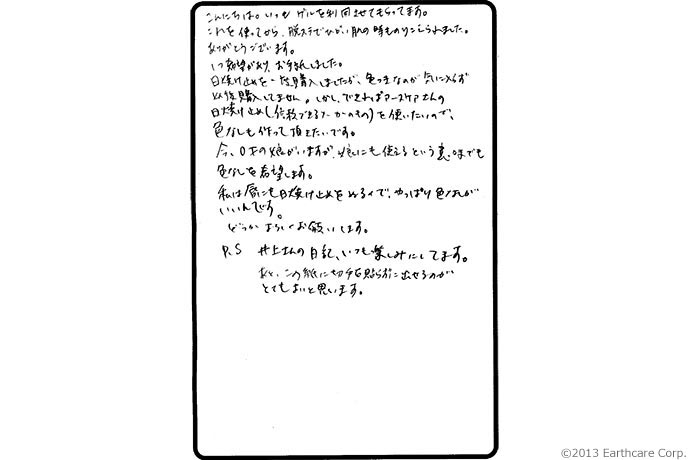 こんにちは。いつも ゲルを利用させてもらってます。
これを使ってから、脱ステでひどい肌の時ものりこえられました。
ありがとうございます。
1つ希望があり、お手紙しました。
日焼け止めを一度購入しましたが、色つきなのが気に入らず
以後購入してません。しかし、できればアースケアさんの
日焼け止め(信頼できるメーカーのもの)を使いたいので、
色なしも作って頂きたいです。
今、0才の娘がいますが、娘にも使えるという意味でも
色なしを希望します。
私は唇にも日焼け止めをぬるので、やっぱり色なしが
いいんです。
どうか よろしくお願いします。
P.S 井上さんの日記、いつも楽しみにしてます。
あと、この紙に切手を貼らずに出せるのが
とてもよいと思います。
©2013 Earthcare Corp.